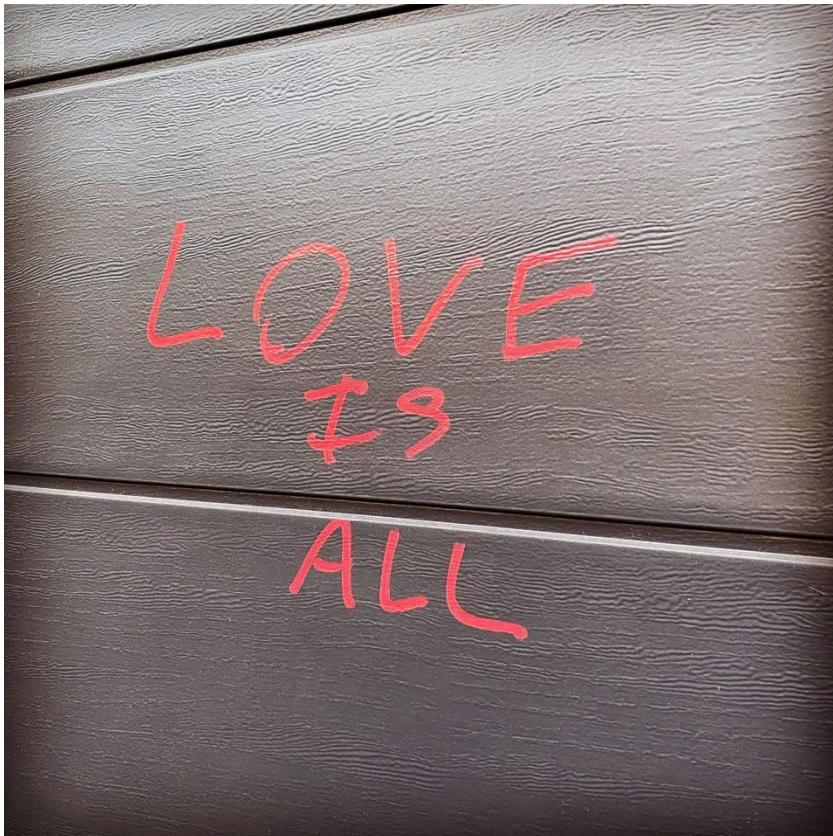 LOVE
IS
ALL